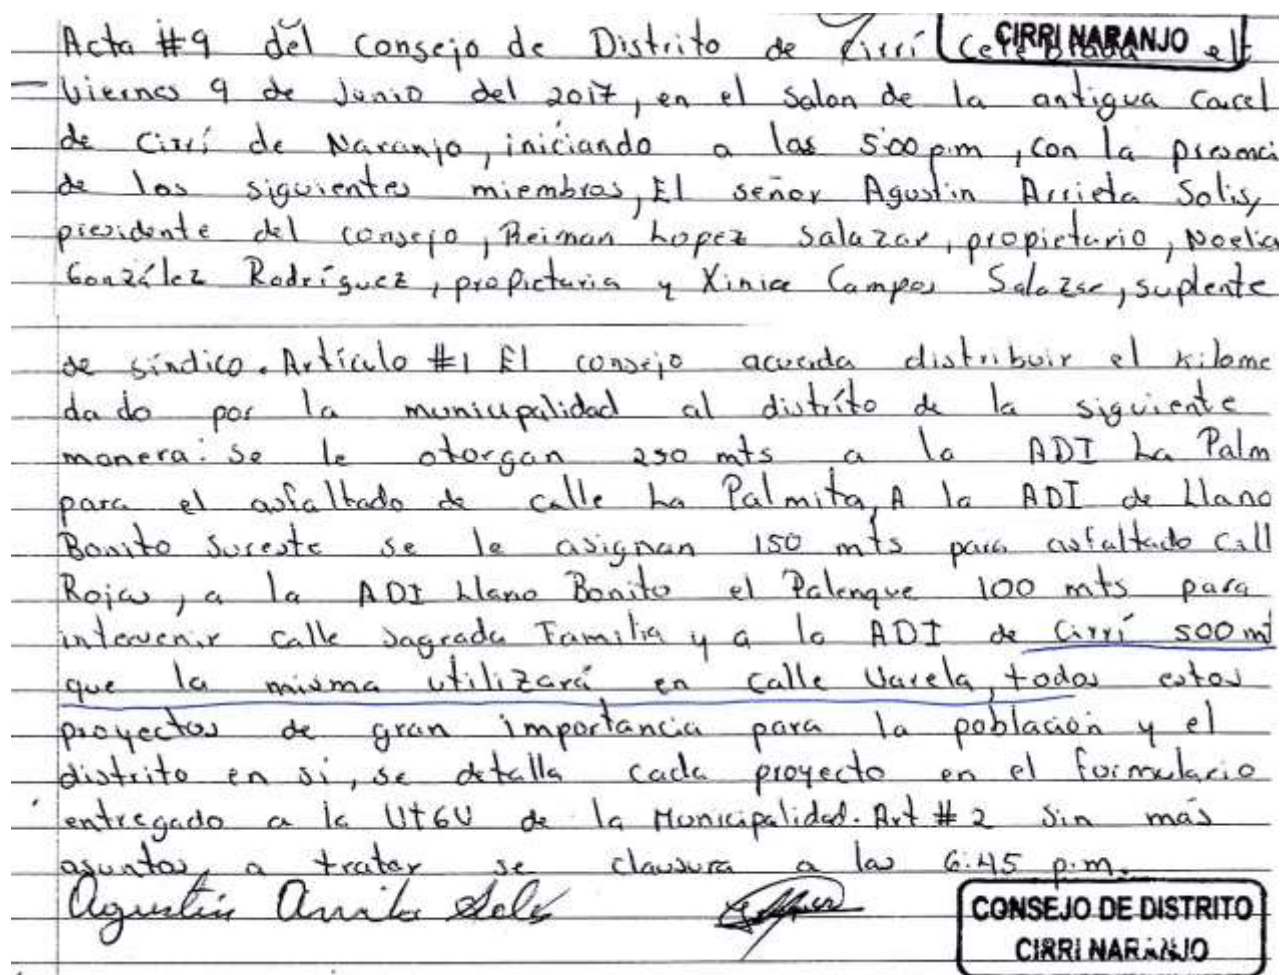 CIRRI NARANJO
Acta #9 del Consejo de Distrito de Cirrí Celebrada el
Viernes 9 de Junio del 2017, en el Salon de la antigua Carcel
de Cirrí de Naranjo, iniciando a las 5:00 p.m, con la presenci
de los siguientes miembros, El señor Agustin Arrieta Solis,
presidente del consejo, Reiman Lopez Salazar, propietario, Noelia
González Rodríguez, propietaria y Xinia Campos Salazar, suplente
de síndico. Artículo #1 El consejo acuerda distribuir el kilome
dado por la municipalidad al distríto de la siguiente
manera: Se le otorgan 250 mts a la ADI La Palm
para el asfaltado de calle La Palmita, A la ADI de Llano
Bonito Sureste se le asignan 150 mts para asfaltado Call
Rojas, a la ADI Llano Bonito el Palenque 100 mts para
intervenir calle Sagrada Familia y a la ADI de Cirrí 500 mt
que la misma utilizará en calle Varela, todos estos
proyectos de gran importancia para la población y el
distrito en si, se detalla cada proyecto en el formulario
entregado a la UTGV de la Municipalidad. Art #2 Sin más
asuntos a tratar se clausura a las 6:45 p.m.
Agustin Arrieta Solis
CONSEJO DE DISTRITO
CIRRI NARANJO